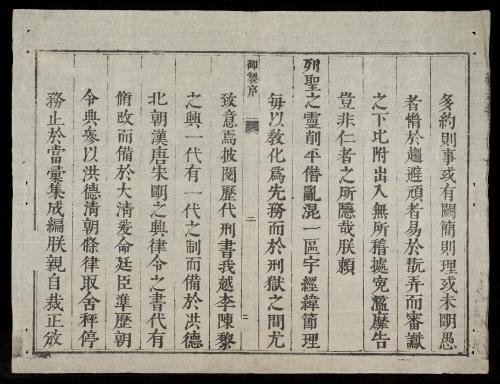 多約則事或有闕簡則理或未明愚
者惛於趨避頑者易於訑弄而審讞
之下比附出入無所稽據寃濫靡告
豈非仁者之所隱哉朕賴
列聖之靈削平僭亂混一區宇經緯節理
每以敎化爲先務而於刑獄之間尤
御製序
二
致意焉披閱歷代刑書我越李陳黎
之興一代有一代之制而備於洪德
北朝漢唐宋明之興律令之書代有
脩改而備於大清爰命廷臣準歷朝
令典參以洪德清朝條律取舍秤停
務止於當彙集成編朕親自裁正放